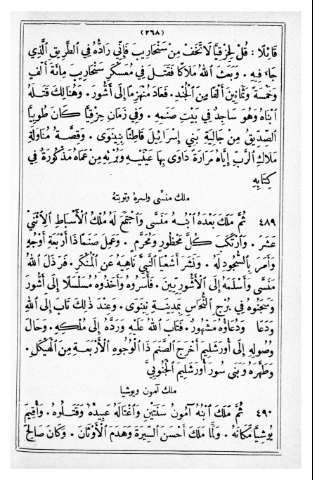 (٢٦٨)
قَائِلًا : قُلْ لِحِزْقِيَّا لَا تَخَفْ مِنْ سَنْحَارِيبَ فَإِنِّي رَادُّهُ فِي الطَّرِيقِ الَّذِي
جَاءَ فِيهِ . وَبَعَثَ اللهُ مَلَاكًا فَقَتَلَ فِي مُعَسْكَرِ سَنْحَارِيبَ مِائَةَ أَلْفٍ
وَخَمْسَةً وَثَمَانِينَ أَلْفًا مِنَ الْجُنْدِ . فَعَادَ مُنْهَزِمًا إِلَى أَشُورَ . وَهُنَالِكَ قَتَلَهُ
ابْنَاهُ وَهُوَ سَاجِدٌ فِي بَيْتِ صَنَمِهِ . وَفِي زَمَانِ حِزْقِيَّا كَانَ طُوبِيَّا
الصِّدِّيقُ مِنْ جَالِيَةِ بَنِي إِسْرَائِيلَ قَاطِنًا بِنِينَوَى . وَقِصَّةُ مُنَاوَلَةِ
مَلَاكِ الرَّبِّ إِيَّاهُ مَرَارَةً دَاوَى بِهَا عَيْنَيْهِ وَبُرْئِهِ مِنْ عَمَاهُ مَذْكُورَةٌ فِي
كِتَابِهِ
ملك منسّى واسره وتوبته
٤٨٩ ثُمَّ مَلَكَ بَعْدَهُ ابْنُهُ مَنَسَّى وَاجْتَمَعَ لَهُ مُلْكُ الْأَسْبَاطِ الِاثْنَيْ
عَشَرَ . وَارْتَكَبَ كُلَّ مَحْظُورٍ وَمُحَرَّمٍ . وَعَمِلَ صَنَمًا ذَا أَرْبَعَةِ أَوْجُهٍ
وَأَمَرَ بِالسُّجُودِ لَهُ . وَنَشَرَ أَشَعْيَا النَّبِيَّ نَاهِيَهُ عَنِ الْمُنْكَرِ . فَرَذَلَ اللهُ
مَنَسَّى وَأَسْلَمَهُ إِلَى الْأَشُورِيِّينَ . فَأَسَرُوهُ وَأَخَذُوهُ مُسَلْسَلًا إِلَى أَشُورَ
وَسَجَنُوهُ فِي بُرْجِ النُّحَاسِ بِمَدِينَةِ نِينَوَى . وَعِنْدَ ذَلِكَ تَابَ إِلَى اللهِ
وَدَعَا وَدُعَاؤُهُ مَشْهُورٌ . فَتَابَ اللهُ عَلَيْهِ وَرَدَّهُ إِلَى مُلْكِهِ . وَحَالَ
وُصُولِهِ إِلَى أُورَشَلِيمَ أَخْرَجَ الصَّنَمَ ذَا الْوُجُوهِ الْأَرْبَعَةِ مِنَ الْهَيْكَلِ .
وَطَهَّرَهُ وَبَنَى سُورَ أُورَشَلِيمَ الْجَنُوبِيَّ
ملك آمون ويوشيا
٤٩٠ ثُمَّ مَلَكَ ابْنُهُ آمُونُ سَنَتَيْنِ وَاغْتَالَهُ عَبِيدُهُ وَقَتَلُوهُ . وَأُقِيمَ
يُوشِيَّا مَكَانَهُ . وَلَمَّا مَلَكَ أَحْسَنَ السِّيرَةَ وَهَدَمَ الْأَوْثَانَ . وَكَانَ صَالِحَ